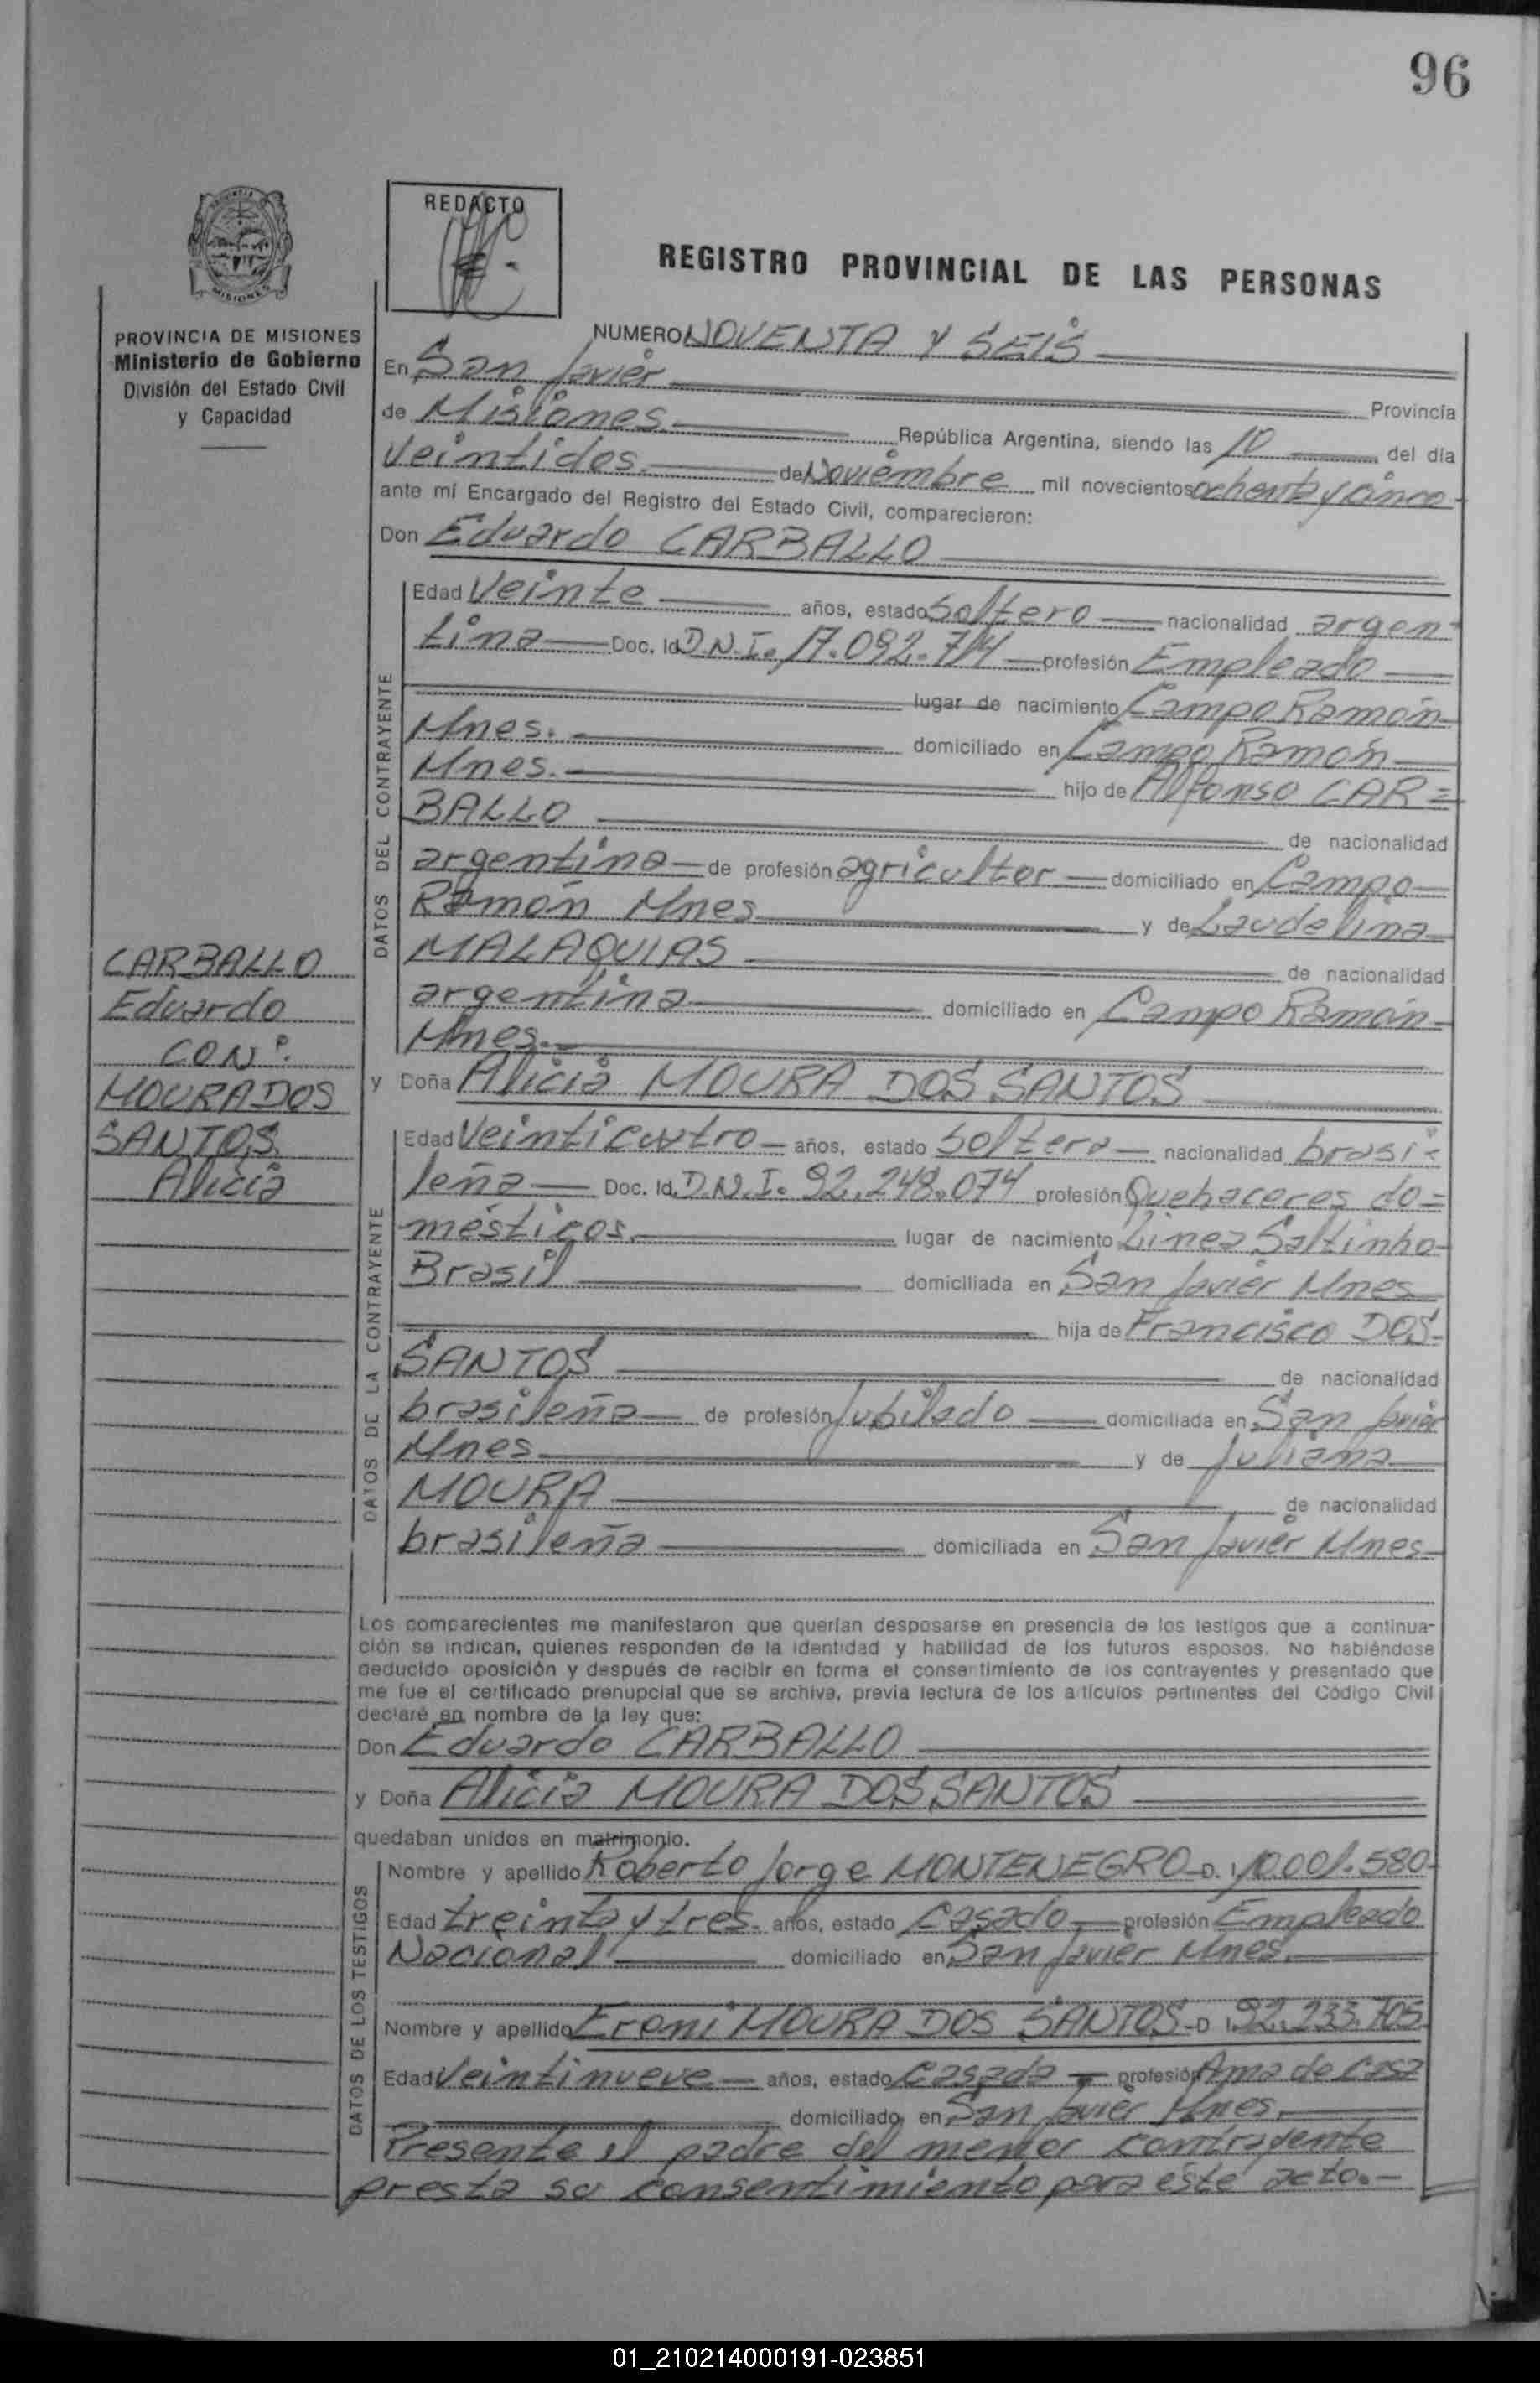 96
REDACTO
REGISTRO PROVINCIAL DE LAS PERSONAS
PROVINCIA DE MISIONES
Ministerio de Gobierno
División del Estado Civil
y Capacidad
NUMERO NOVENTA Y SEIS
En San Javier Provincia
de Misiones. República Argentina, siendo las 10 del día
Veintidos. de Noviembre mil novecientos ochenta y cinco
ante mi Encargado del Registro del Estado Civil, comparecieron:
Don Eduardo CARBALLO
DATOS DEL CONTRAYENTE
Edad Veinte años, estado Soltero nacionalidad argen-
tina Doc. Id D.N.I. 17.092.714 profesión Empleado
lugar de nacimiento Campo Ramón
Mnes. domiciliado en Campo Ramón
Mnes. hijo de Alfonso CAR=
BALLO de nacionalidad
argentina de profesión agricultor domiciliado en Campo
Ramón Mnes y de Laudelina
MALAQUIAS de nacionalidad
argentina domiciliado en Campo Ramón
Mnes.
CARBALLO
Eduardo
CON:
MOURA DOS
SANTOS
Alicia
y Doña Alicia MOURA DOS SANTOS
DATOS DE LA CONTRAYENTE
Edad Veinticuatro años, estado Soltera nacionalidad brasi=
leña Doc. Id. D.N.I. 92.248.074 profesión Quehaceres do=
mésticos. lugar de nacimiento Linea Saltinho
Brasil domiciliada en San Javier Mnes
hija de Francisco DOS
SANTOS de nacionalidad
brasileña de profesión Jubilado domiciliada en San Javier
Mnes y de Juliana
MOURA de nacionalidad
brasileña domiciliada en San Javier Mnes
Los comparecientes me manifestaron que querían desposarse en presencia de los testigos que a continua-
ción se indican, quienes responden de la identidad y habilidad de los futuros esposos. No habiéndose
deducido oposición y después de recibir en forma el consentimiento de los contrayentes y presentado que
me fue el certificado prenupcial que se archiva, previa lectura de los artículos pertinentes del Código Civil
declaré en nombre de la ley que:
Don Eduardo CARBALLO
y Doña Alicia MOURA DOS SANTOS
quedaban unidos en matrimonio.
DATOS DE LOS TESTIGOS
Nombre y apellido Roberto Jorge MONTENEGRO D. I. 10.001.580
Edad treinta y tres. años, estado Casado profesión Empleado
Nacional domiciliado en San Javier Mnes.
Nombre y apellido Eroni MOURA DOS SANTOS D I. 92.233.705
Edad Veintinueve años, estado Casada profesión Ama de Casa
domiciliado en San Javier Mnes.
Presente el padre del menor contrayente
presta su consentimiento para este acto.-
01_210214000191-023851